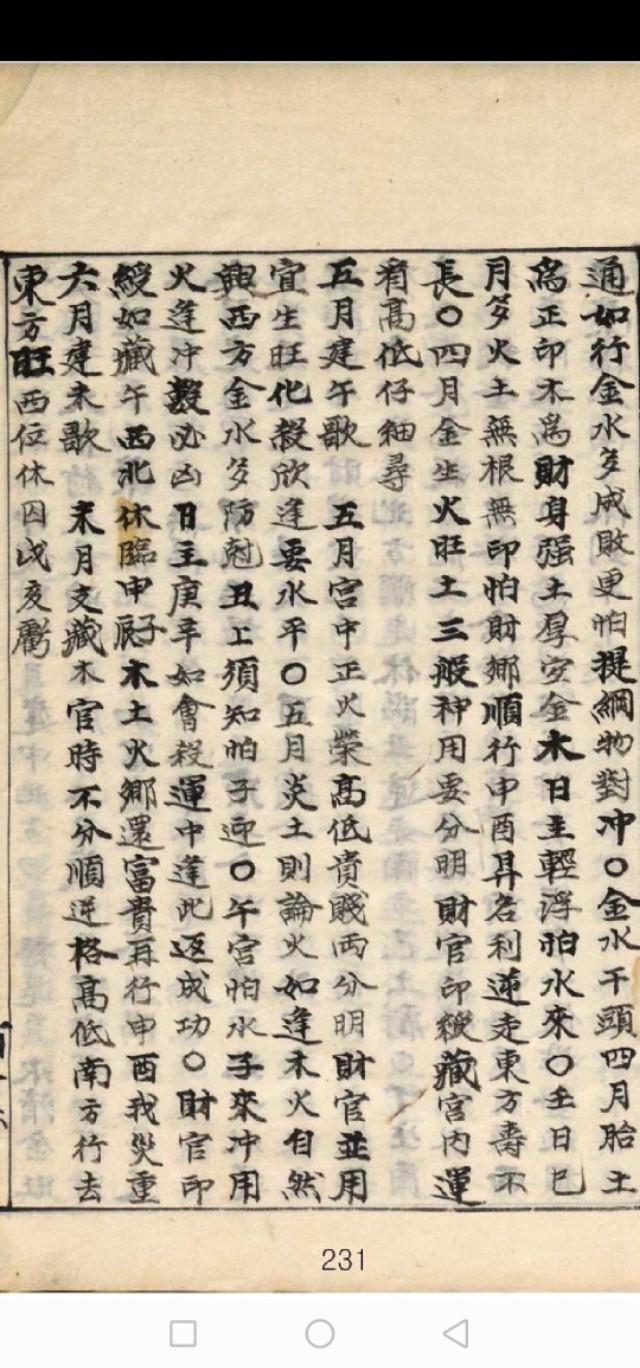 通如行金水多成敗更怕提綱物對冲○金水干頭四月胎土
為正印木為財身强土厚安金木日主輕浮怕水來○壬日巳
月多火土無根無印怕財鄉順行申酉昇名利逆走東方壽不
長○四月金生火旺土三般神用要分明財官印綬藏宮内運
有高低仔細尋
五月建午歌 五月宮中正火榮高低貴賤两分明財官並用
宜生旺化殺欣逢要水平○五月炎土則論火如逢木火自然
興西方金水多防尅丑上須知怕子迎○午宮怕水子來冲用
火逢冲數必凶日主庚辛如會殺運中逢此返成功○財官印
綬如藏午西北休臨申子辰木土火鄉還富貴再行申酉我災重
六月建未歌 未月支藏木官時不分順逆格高低南方行去
東方旺西位休囚戌亥虧
231